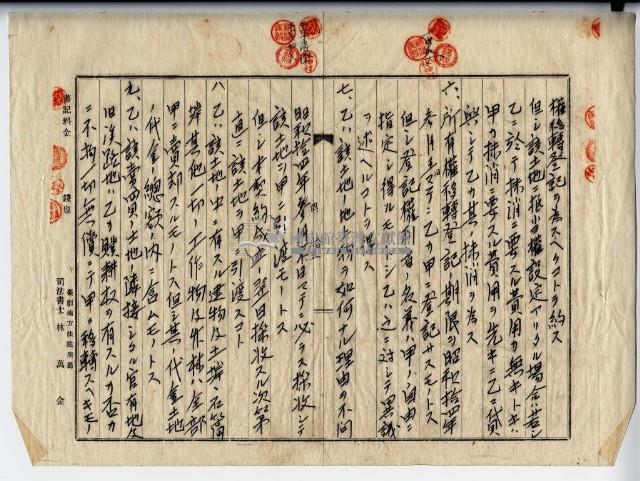 權移轉登記ヲ為スヘクコトヲ約ス
但シ該土地ニ抵當權設定アリタル場合ハ若シ
乙ニ於テ抹消ニ要スル費用カ無キトキハ
甲カ抹消ニ要スル費用ヲ先キニ乙ニ貸
與シテ乙カ其ノ抹消ヲ為ス
六、所有權移轉登記ノ期限ヲ昭和拾四年
マテニ乙カ甲ニ登記サスモノトス
但シ登記權 者ノ名義ハ甲ノ自由ニ
指定シ得ルモノトシ乙ハ之ニ對シテ異議
ヲ述ヘルコトヲ得ス
七、乙ハ該土地ノ地上物ヲ如何ナル理由ヲ不問
昭和拾四年 月 日マテニ必ラス採收シテ
該土地ヲ甲ニ引渡スモノトス
但シ本契約成立ノ翌日採收スル次第
直ニ該土地ヲ甲ニ引渡スコト
八、乙ハ該土地ノ中ニ有スル建物及土塀石
其他一切ノ工作物及竹林ハ全部
甲ニ賣却スルモノトス但シ其ノ代金ハ土地
ノ代金ノ總額ノ内ニ含ムモノトス
九、乙ハ該賣買ノ土地ニ隣接シタル官有地及
旧渓路地ハ乙カ贌耕權ヲ有スルカ否カ
ニ不拘一切無償ニテ甲ニ移轉スヘキモノ
書記料金 錢也
臺南地方法院所屬
司法書士 林 萬 金